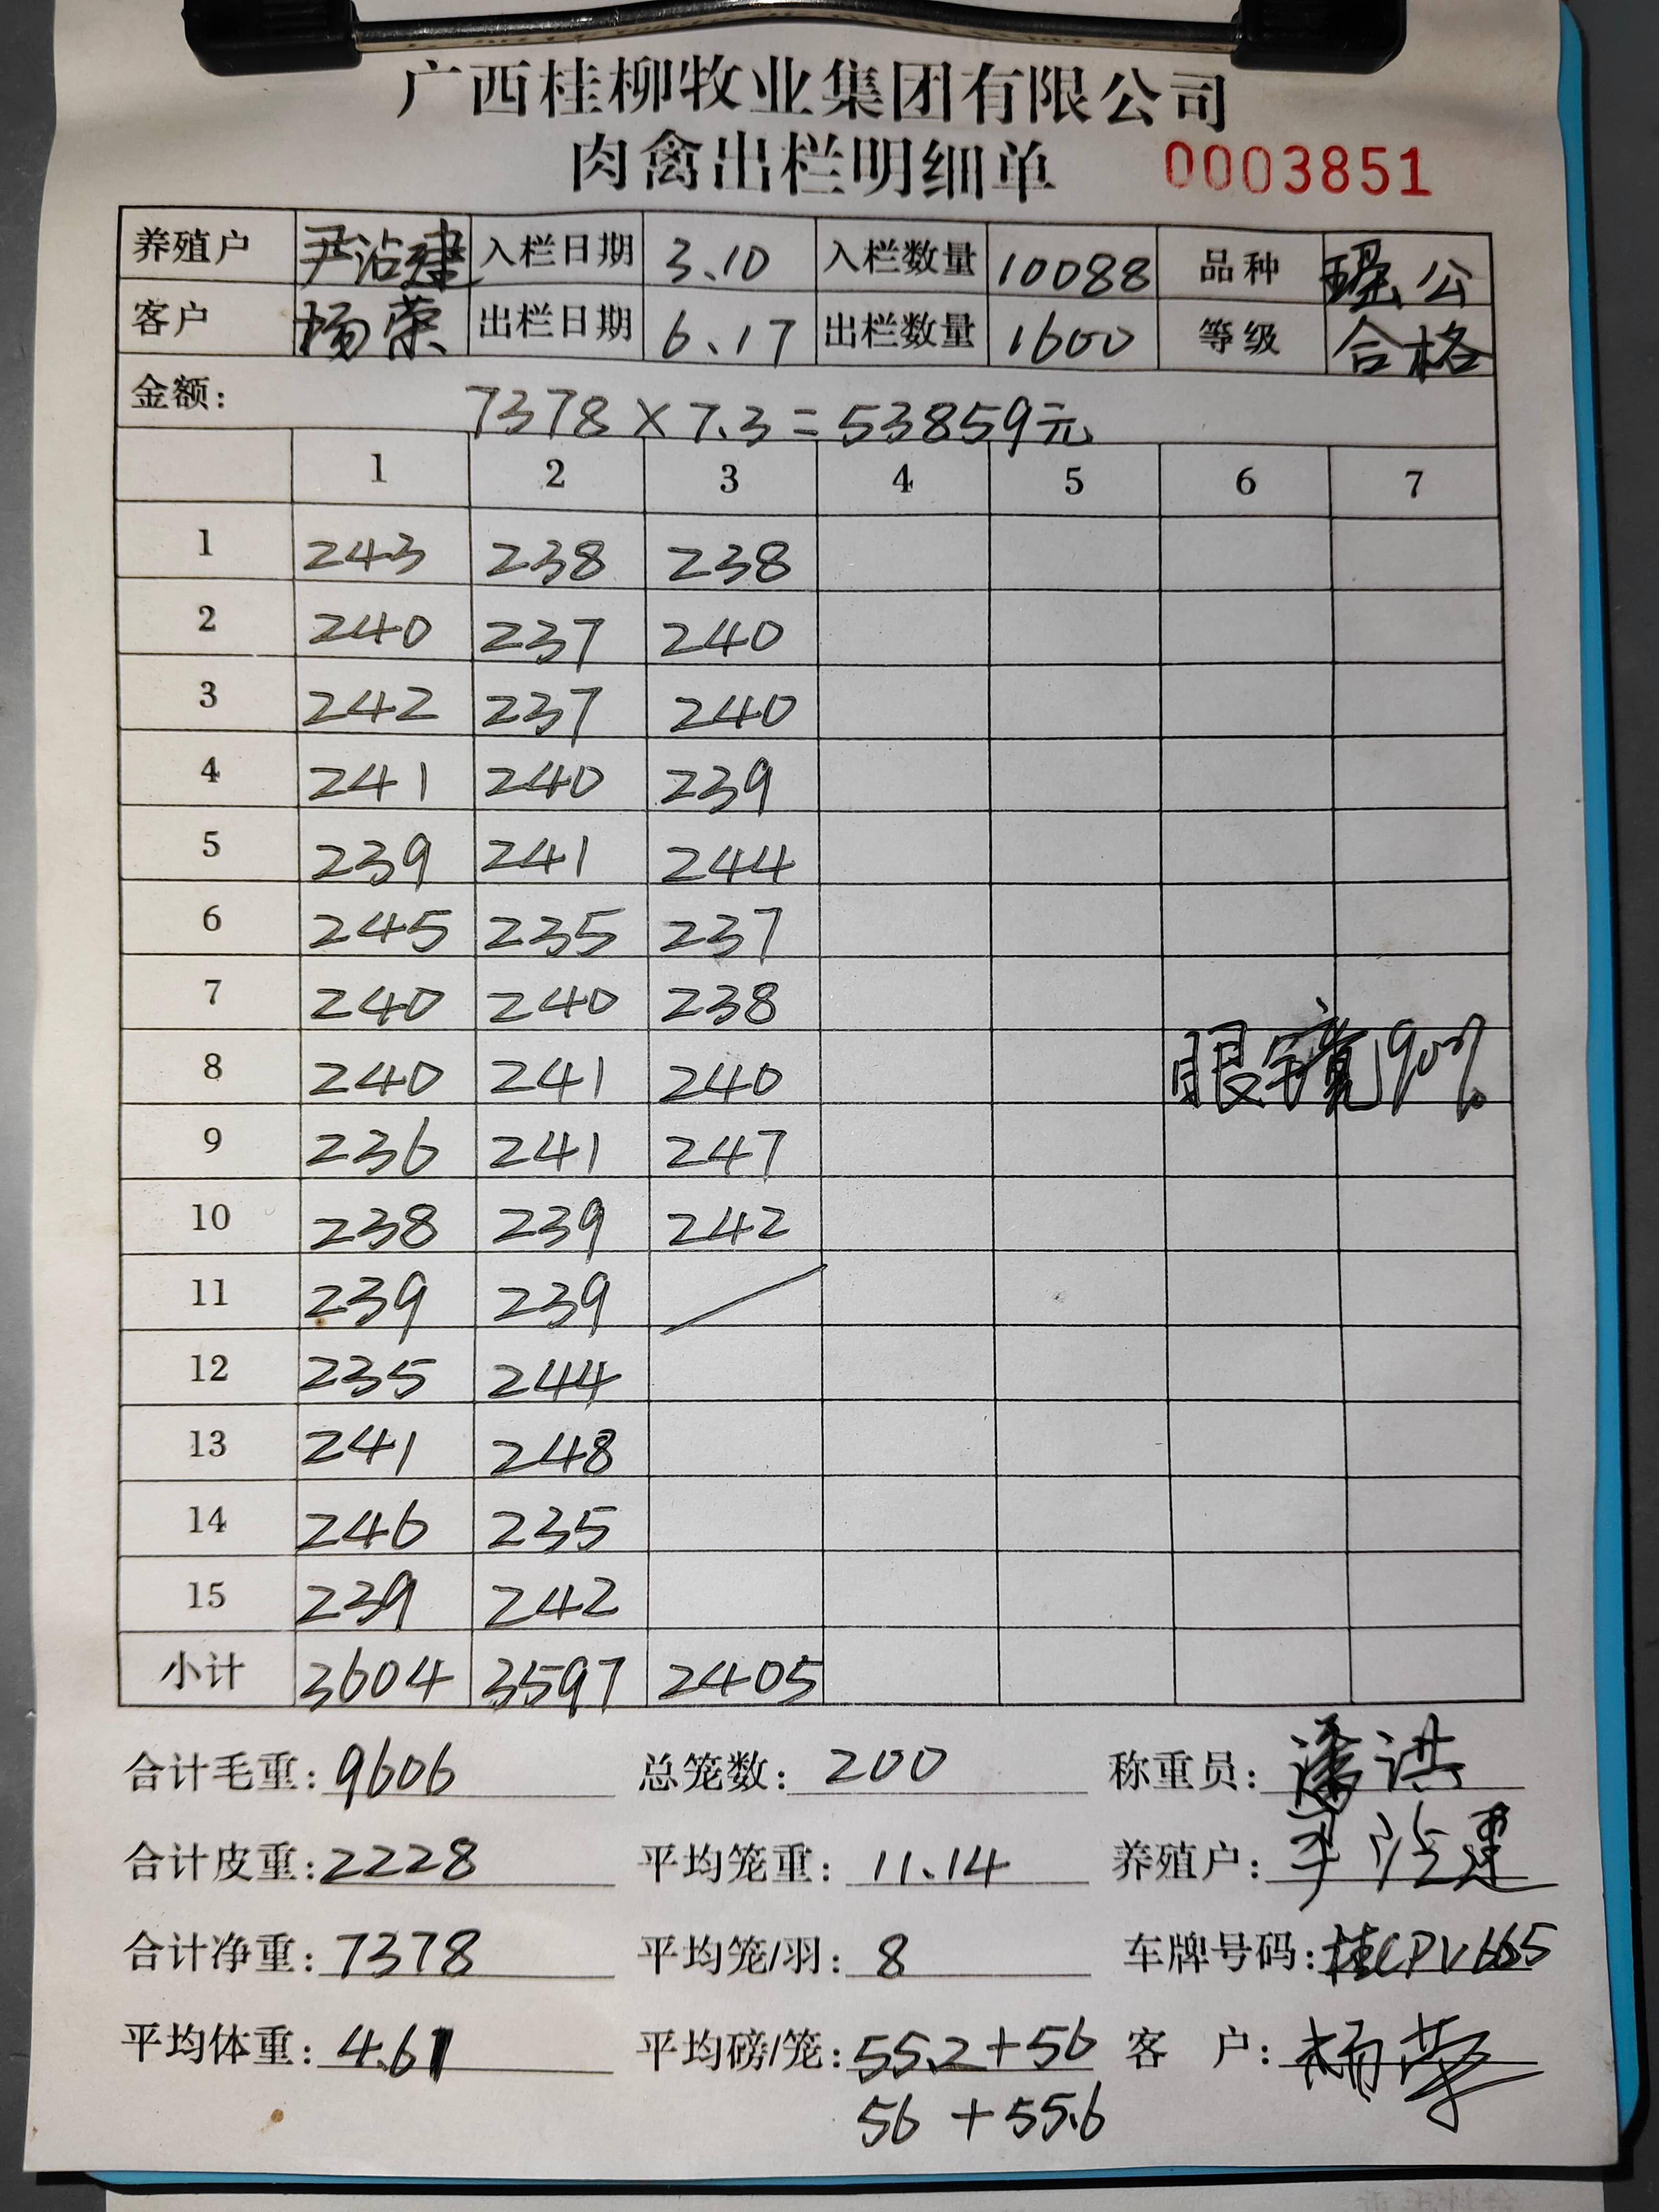 广西桂柳牧业集团有限公司
肉禽出栏明细单 0003851
养殖户 尹沾建 入栏日期 3.10 入栏数量 10088 品种 瑶公
客户 杨荣 出栏日期 6.17 出栏数量 1600 等级 合格
金额: 7378×7.3=53859元
1 2 3 4 5 6 7
1 243 238 238
2 240 237 240
3 242 237 240
4 241 240 239
5 239 241 244
6 245 235 237
7 240 240 238
8 240 241 240 眼镜90%
9 236 241 247
10 238 239 242
11 239 239
12 235 244
13 241 248
14 246 235
15 239 242
小计 3604 3597 2405
合计毛重: 9606 总笼数: 200 称重员: 潘洪
合计皮重: 2228 平均笼重: 11.14 养殖户: 尹沾建
合计净重: 7378 平均笼/羽: 8 车牌号码: 桂CPV665
平均体重: 4.61 平均磅/笼: 55.2+56 客户: 杨荣
56+55.6